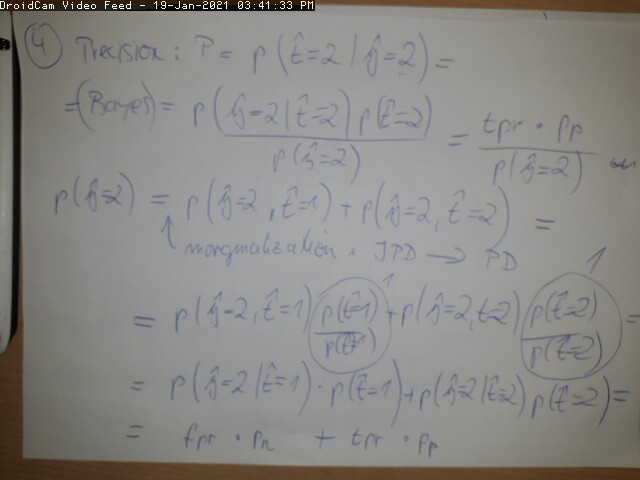 DroidCam Video Feed - 19-Jan-2021 03:41:33 PM
4 Precision: P = p(t̂=2 | ŷ=2) =
=(Bayes)= p(ŷ=2 | t̂=2) p(t̂=2) / p(ŷ=2) = tpr · pp / p(ŷ=2)
p(ŷ=2) = p(ŷ=2, t̂=1) + p(ŷ=2, t̂=2) =
↑ JPD → PD
1 1
= p(ŷ=2, t̂=1) p(t̂=1) / p(t̂=1) + p(ŷ=2, t=2) p(t̂=2) / p(t̂=2) =
= p(ŷ=2 | t̂=1) · p(t̂=1) + p(ŷ=2 | t̂=2) p(t̂=2) =
= fpr · pn + tpr · pp